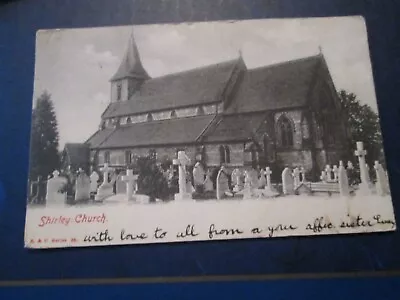 Shirley Church.
with love to all from a yor affic sister